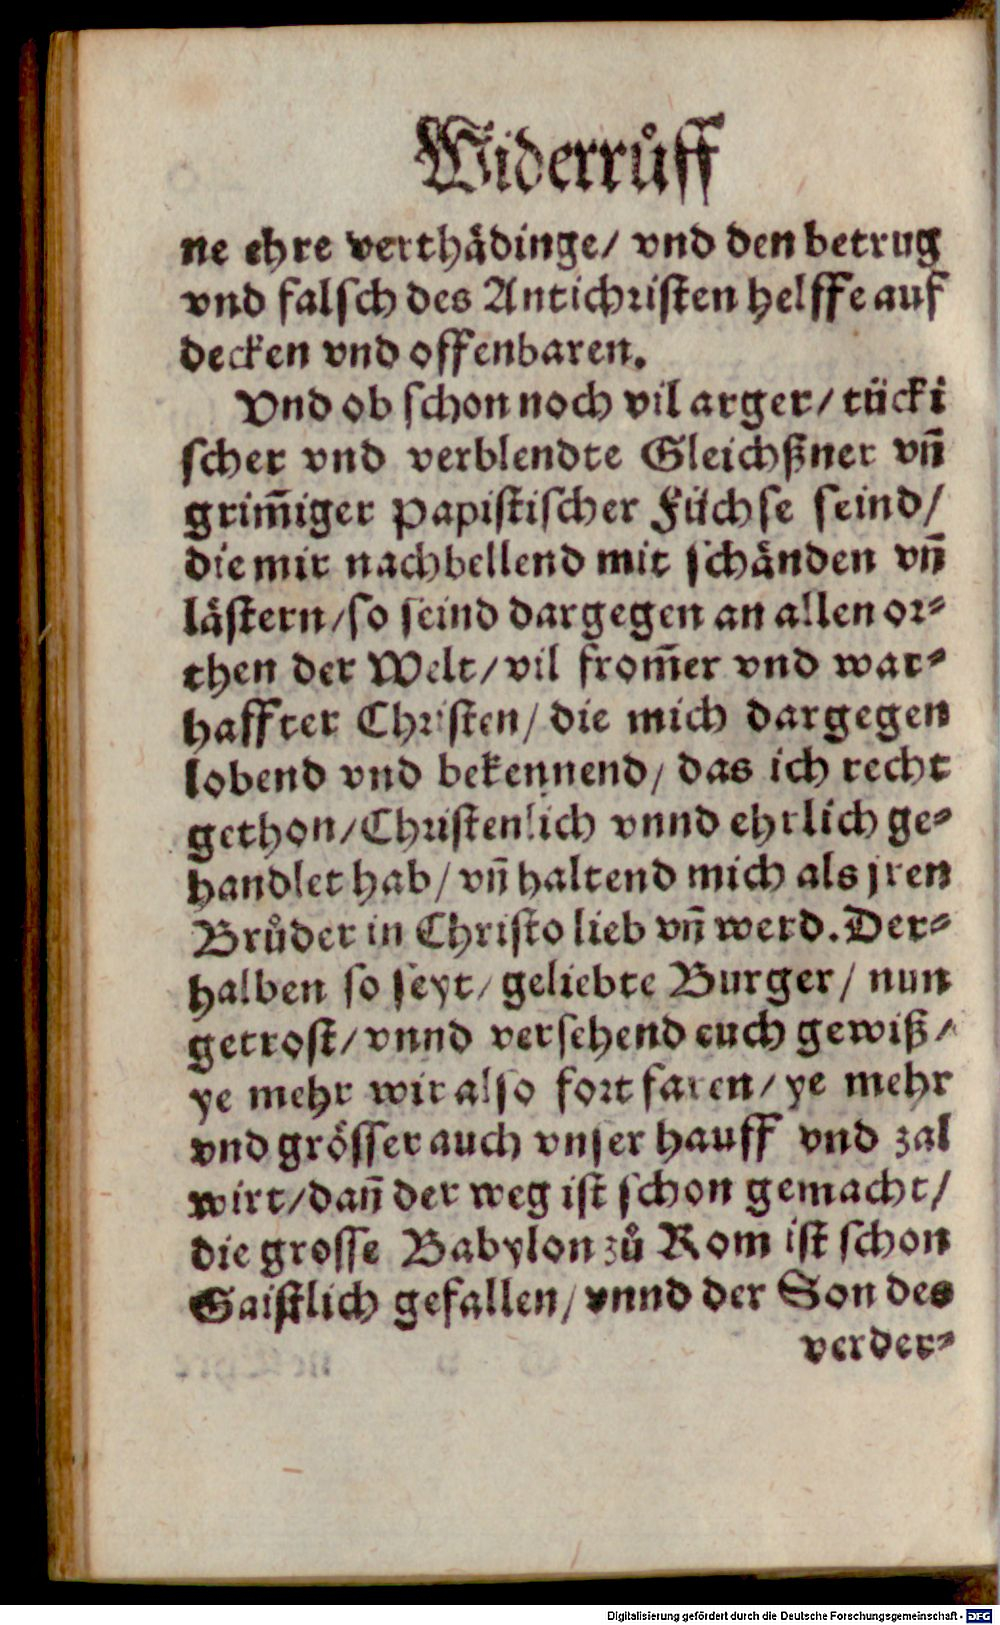 Widerrůff
ne ehre verthädinge/ vnd den betrug
vnd falsch des Antichristen helffe auf
decken vnd offenbaren.
Vnd ob schon noch vil arger/ tücki
scher vnd verblendte Gleichßner vñ
grim̃iger Papistischer Füchse seind/
die mir nachbellend mit schänden vñ
lästern/so seind dargegen an allen or-
then der Welt/ vil from̃er vnd war-
haffter Christen/ die mich dargegen
lobend vnd bekennend/ das ich recht
gethon/Christenlich vnnd ehrlich ge-
handlet hab/ vñ haltend mich als jren
Brůder in Christo lieb vñ werd. Der-
halben so seyt/ geliebte Burger/ nun
getrost/ vnnd versehend euch gewiß/
ye mehr wir also fort faren/ ye mehr
vnd grösser auch vnser hauff vnd zal
wirt/dañ der weg ist schon gemacht/
die grosse Babylon zů Rom ist schon
Gaistlich gefallen/ vnnd der Son des
verder-
Digitalisierung gefördert durch die Deutsche Forschungsgemeinschaft - DFG